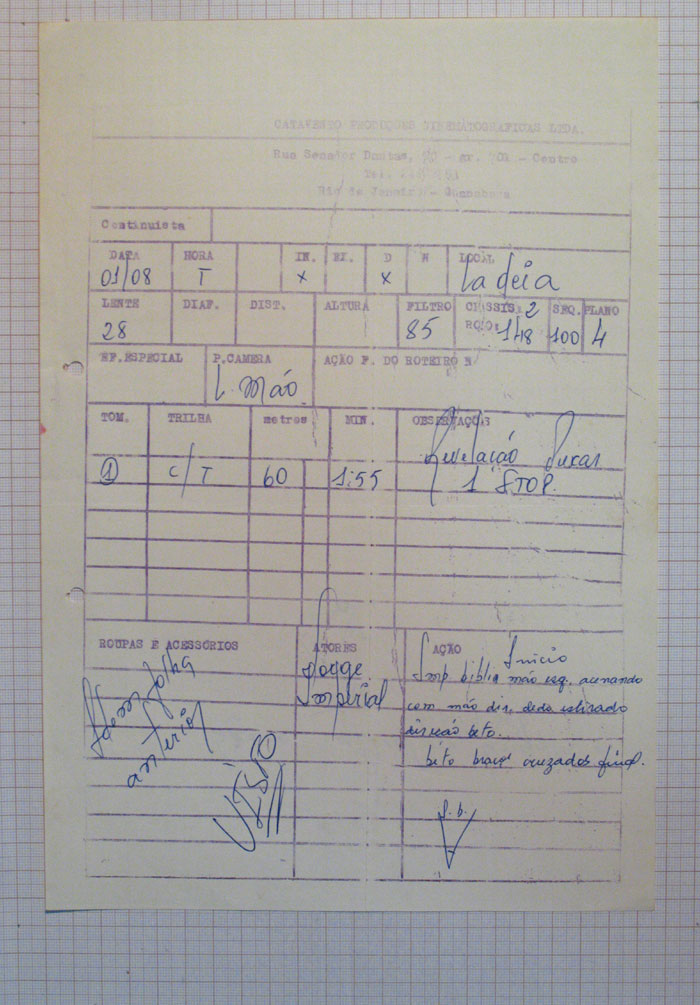 CATAVENTO PRODUÇÕES CINEMATOGRAFICAS LTDA.
Rua Senador Dantas, - gr. 701 - Centro
Tel.
Rio de Janeiro - Guanabara
Continuista
DATA HORA IN. EX. D N LOCAL
01/08 T x x
LENTE DIAF. DIST. ALTURA FILTRO CHASSIS: 2 SEQ. PLANO
28 85 ROLO: 148 100 4
EF.ESPECIAL P.CAMERA AÇÃO P. DO ROTEIRO N
Mão
TOM. TRILHA metros MIN. OBSERVAÇÕES
Revelação Puxar
1 c/T 60 1:55 1 STOP.
ROUPAS E ACESSÓRIOS ATORES AÇÃO
Idem folha
anterior
VISTO
Jorge
Imperial
Início
Imp. biblia mão esq. acenando
com mão dir. dedo esticado
direção beto.
beto braços cruzados final.